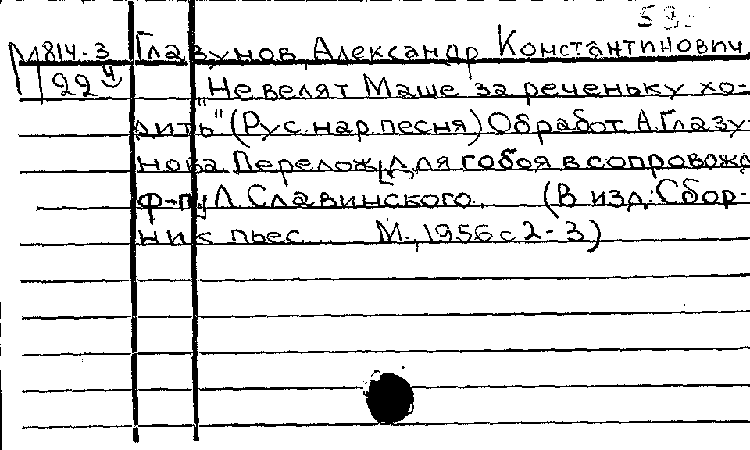 М814-3 Глазунов, Александр Константинович
"Не велят Маше за реченьку хо-
дить" (Рус. нар. песня) Обработ. А. Глазу-
нова. Перелож. для гобоя в сопровожд
ф-пу Л. Славинского. (В изд.: Сбор-
ник пьес. М., 1956 с 2-3)